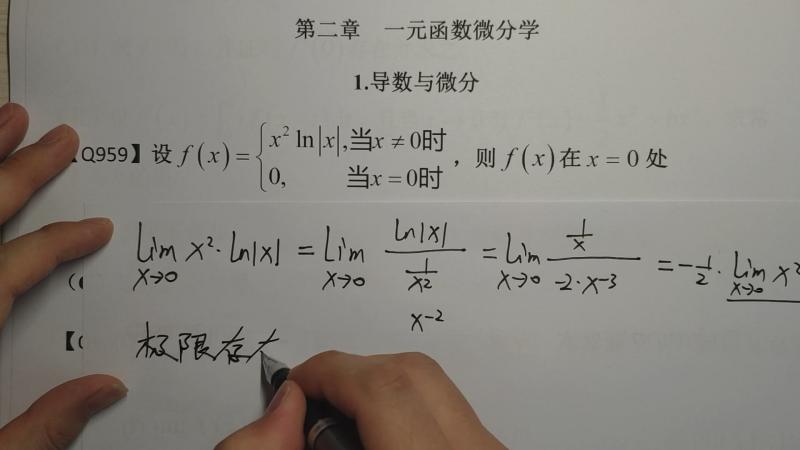 第二章 一元函数微分学
1.导数与微分
Q959】设 f(x)={x² ln|x|,当x≠0时
0, 当x=0时 ,则 f(x)在 x=0 处
lim x→0 x²·ln|x| = lim x→0 ln|x| / (1/x²) = lim x→0 (1/x) / (-2·x⁻³) = -1/2·lim x→0 x²
x⁻²
极限存